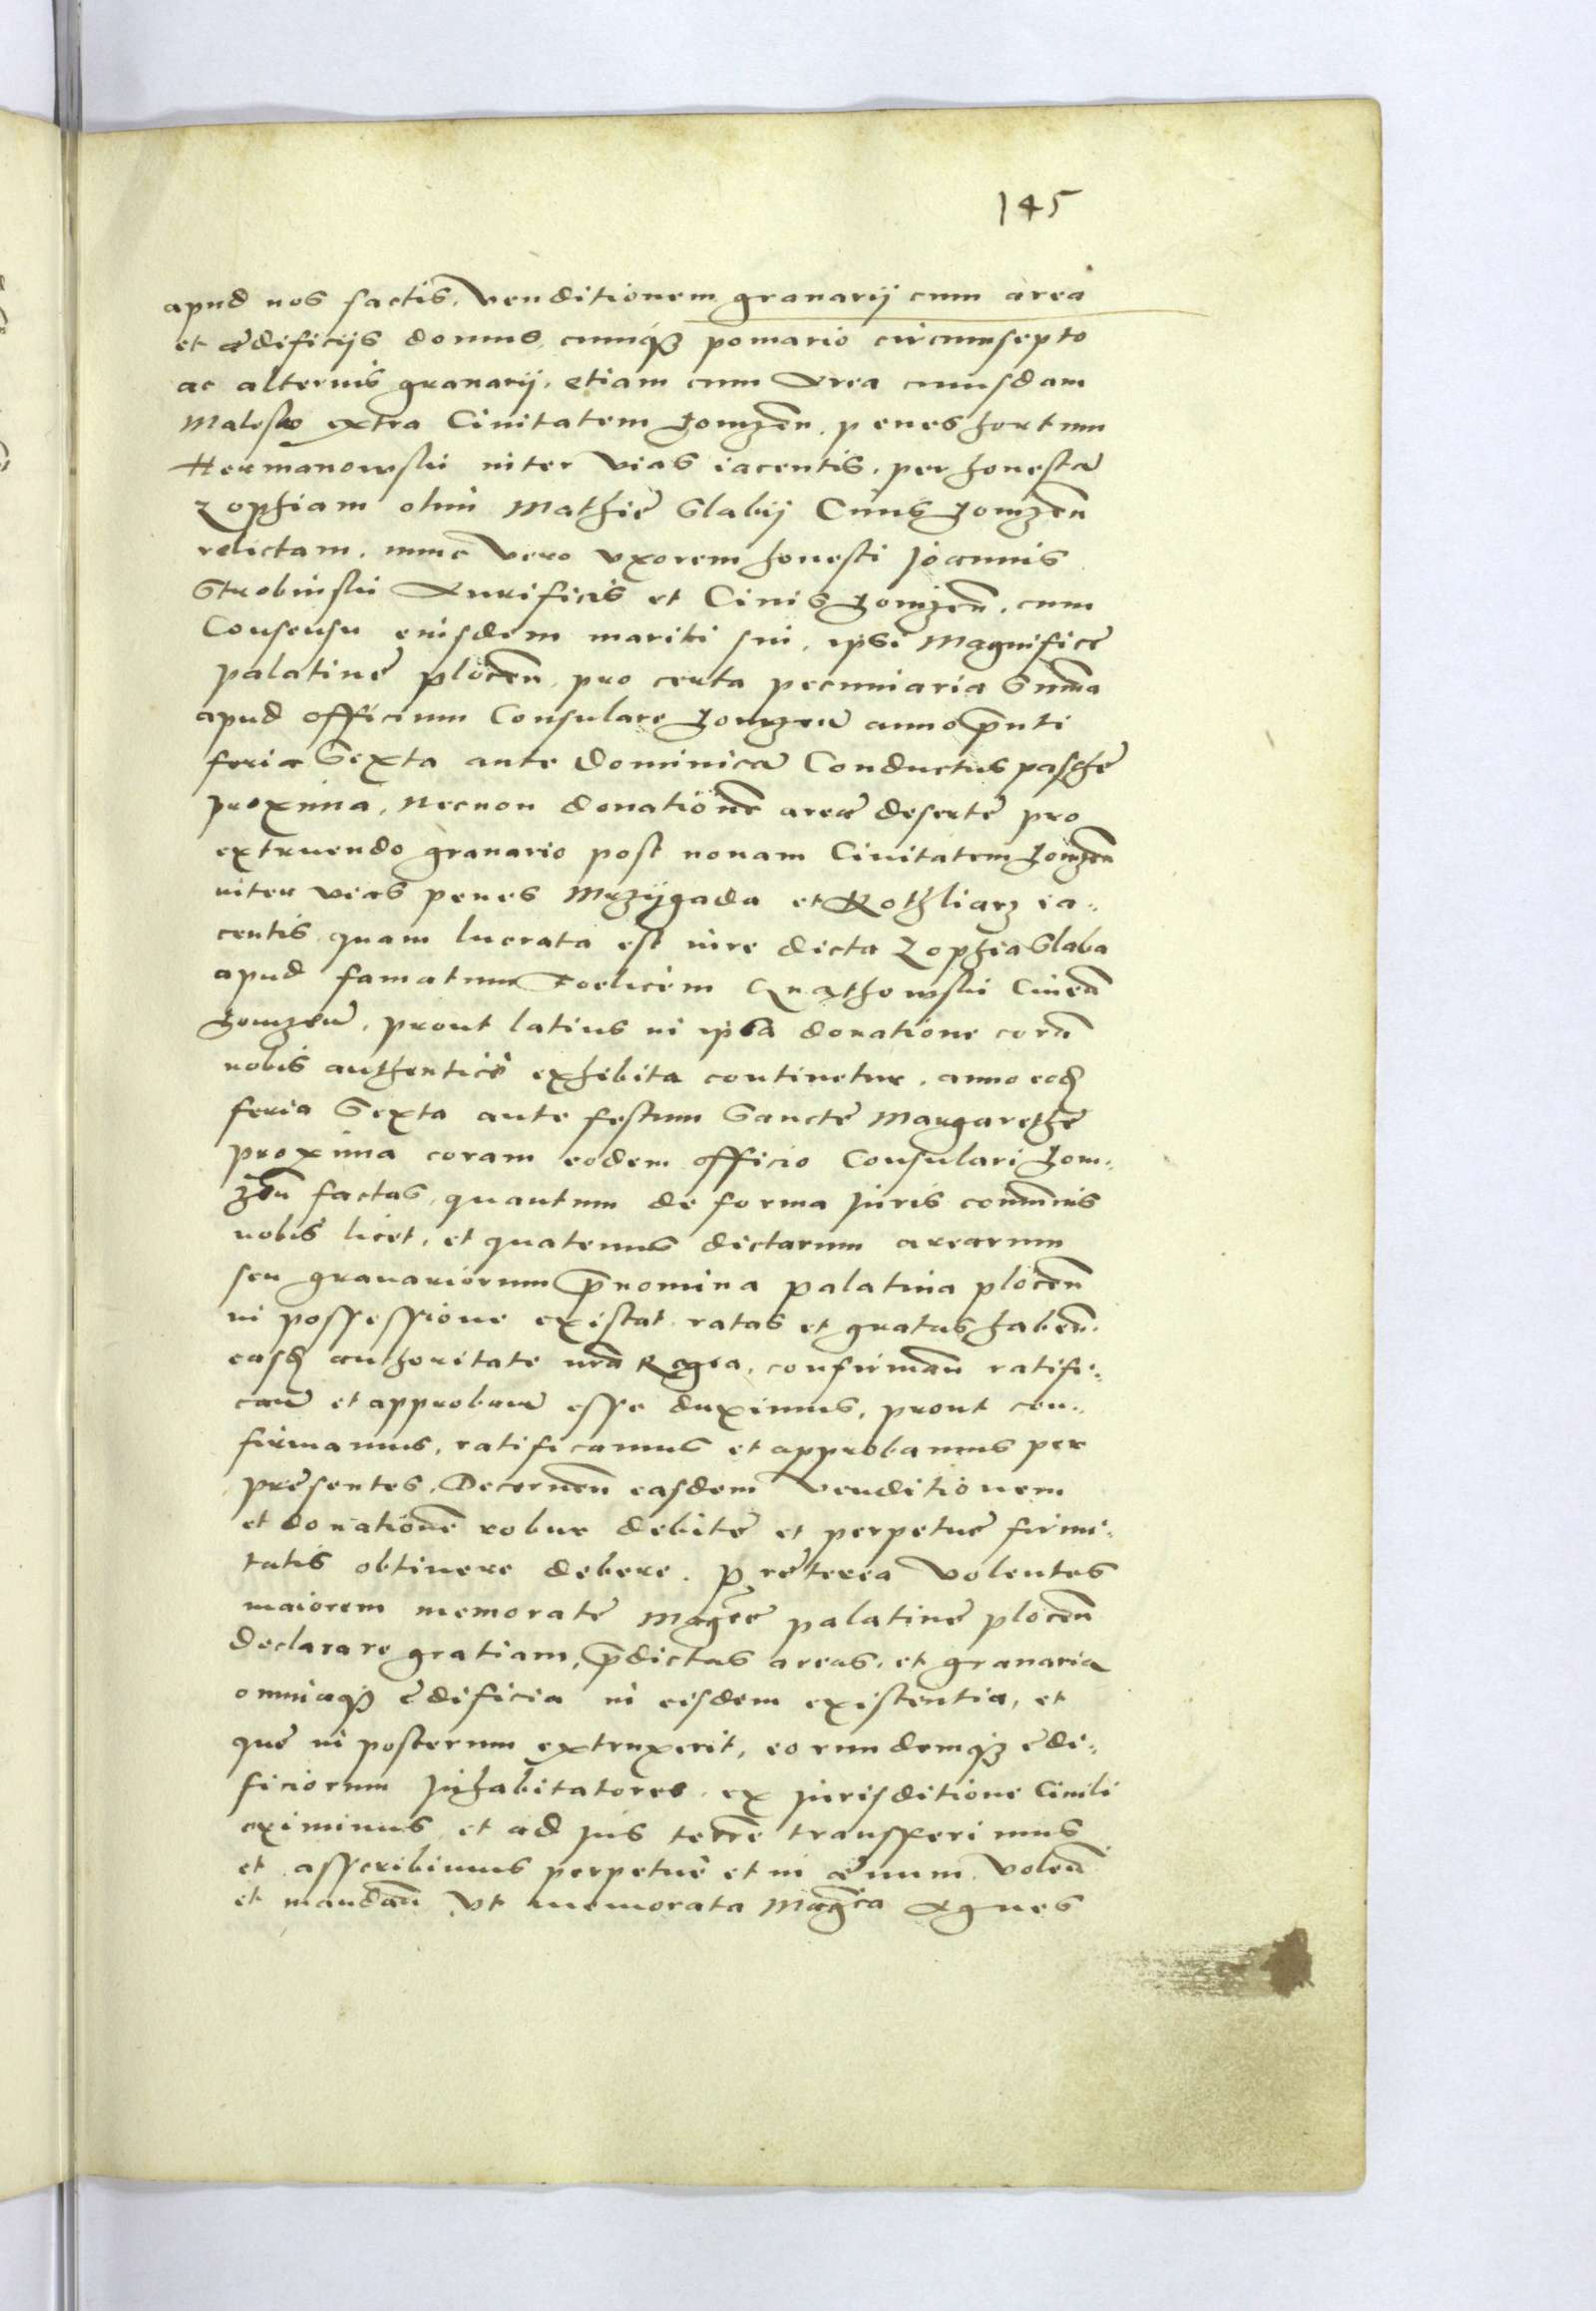 145
apud nos factis. Venditionem granarij cum area
et ædificijs domus cumq₃ pomario circumsepto
ac alterius granarij, etiam cum Area cuiusdam
Malesko extra Ciuitatem Lomzen̄. penes hortum
Hermanowski inter vias iacentis, per honestā
Zophiam olim Mathię Slabij Ciuis Lomzen̄
relictam, nunc vero vxorem honesti Joannis
Strobinski Aurificis et Ciuis Lomzen̄, cum
Consensu eiusdem mariti sui, ipsi Magnificę
palatinę plocen̄, pro certa pecuniaria Summa
apud officium Consulare Lomzen̄ anno p̄nti
feria Sexta ante Dominicā Conductus paschę
proxima, Necnon donationē areæ desertę pro
extruendo granario post nouam Ciuitatem Lomzen̄
inter vias penes Mrziigada et Kothliarz ia„
centis, quam lucrata est iure dicta Zophia Slaba
apud famatum Foelicem Cuathowski Ciuem
Lomzen̄, prout latius in ipsa donatione corā
nobis authenticę exhibita continetur, anno eod̄
feria Sexta ante festum Sanctę Margarethę
proxima coram eodem officio Consulari Lom„
zen̄ factas, quantum de forma Juris communis
nobis licet, et quatenus dictarum arearum
seu granariorum p̄nomina palatina plocen̄
in possessione existat ratas et gratas haben̄.
easd̄ authoritate nr̄a Regia, confirman̄ ratifi„
can̄ et approban̄ esse duximus, prout con„
firmamus, ratificamus et approbamus per
pręsentes, Decernen̄ easdem Venditionem
et donationē robur debitę et perpetuę firmi„
tatis obtinere debere. Pręterea Volentes
maiorem memoratę Mag̅cę palatinę plocen̄
declarare gratiam, p̄dictas areas, et granaria
omniaq₃ ędificia in eisdem existentia, et
quę in posterum extruxerit, eorundemq₃ ędi„
ficiorum Jnhabitatores, ex Jurisditione Ciuili
eximimus et ad Jus terrę transferimus
et asscribimus perpetuę et in æuum. Volen̄
et mandan̄ Vt memorata Mag̅ca Agnes